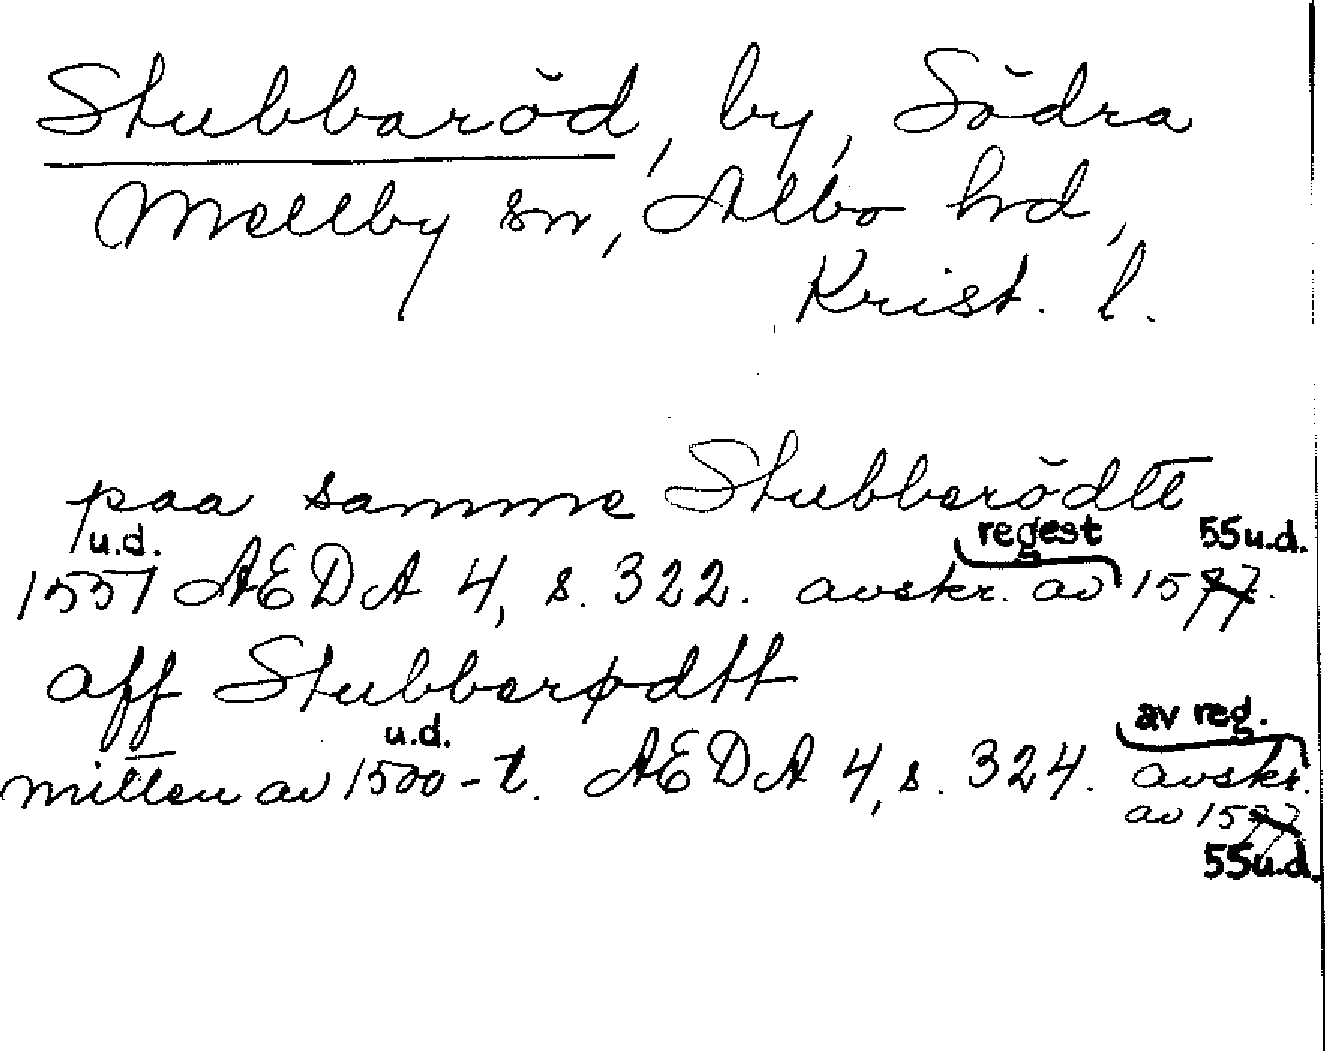 Stubbaröd, by, Södra
Mellby sn, Albo hd,
Krist. l.
paa samme Stubberödtt
u.d. regest 55 u.d.
1551 AEDA 4, s. 322. avskr. av 1577.
aff Stubberødtt
u.d. av reg.
mitten av 1500-t. AEDA 4, s. 324. avskr.
av 1577
55 u.d.